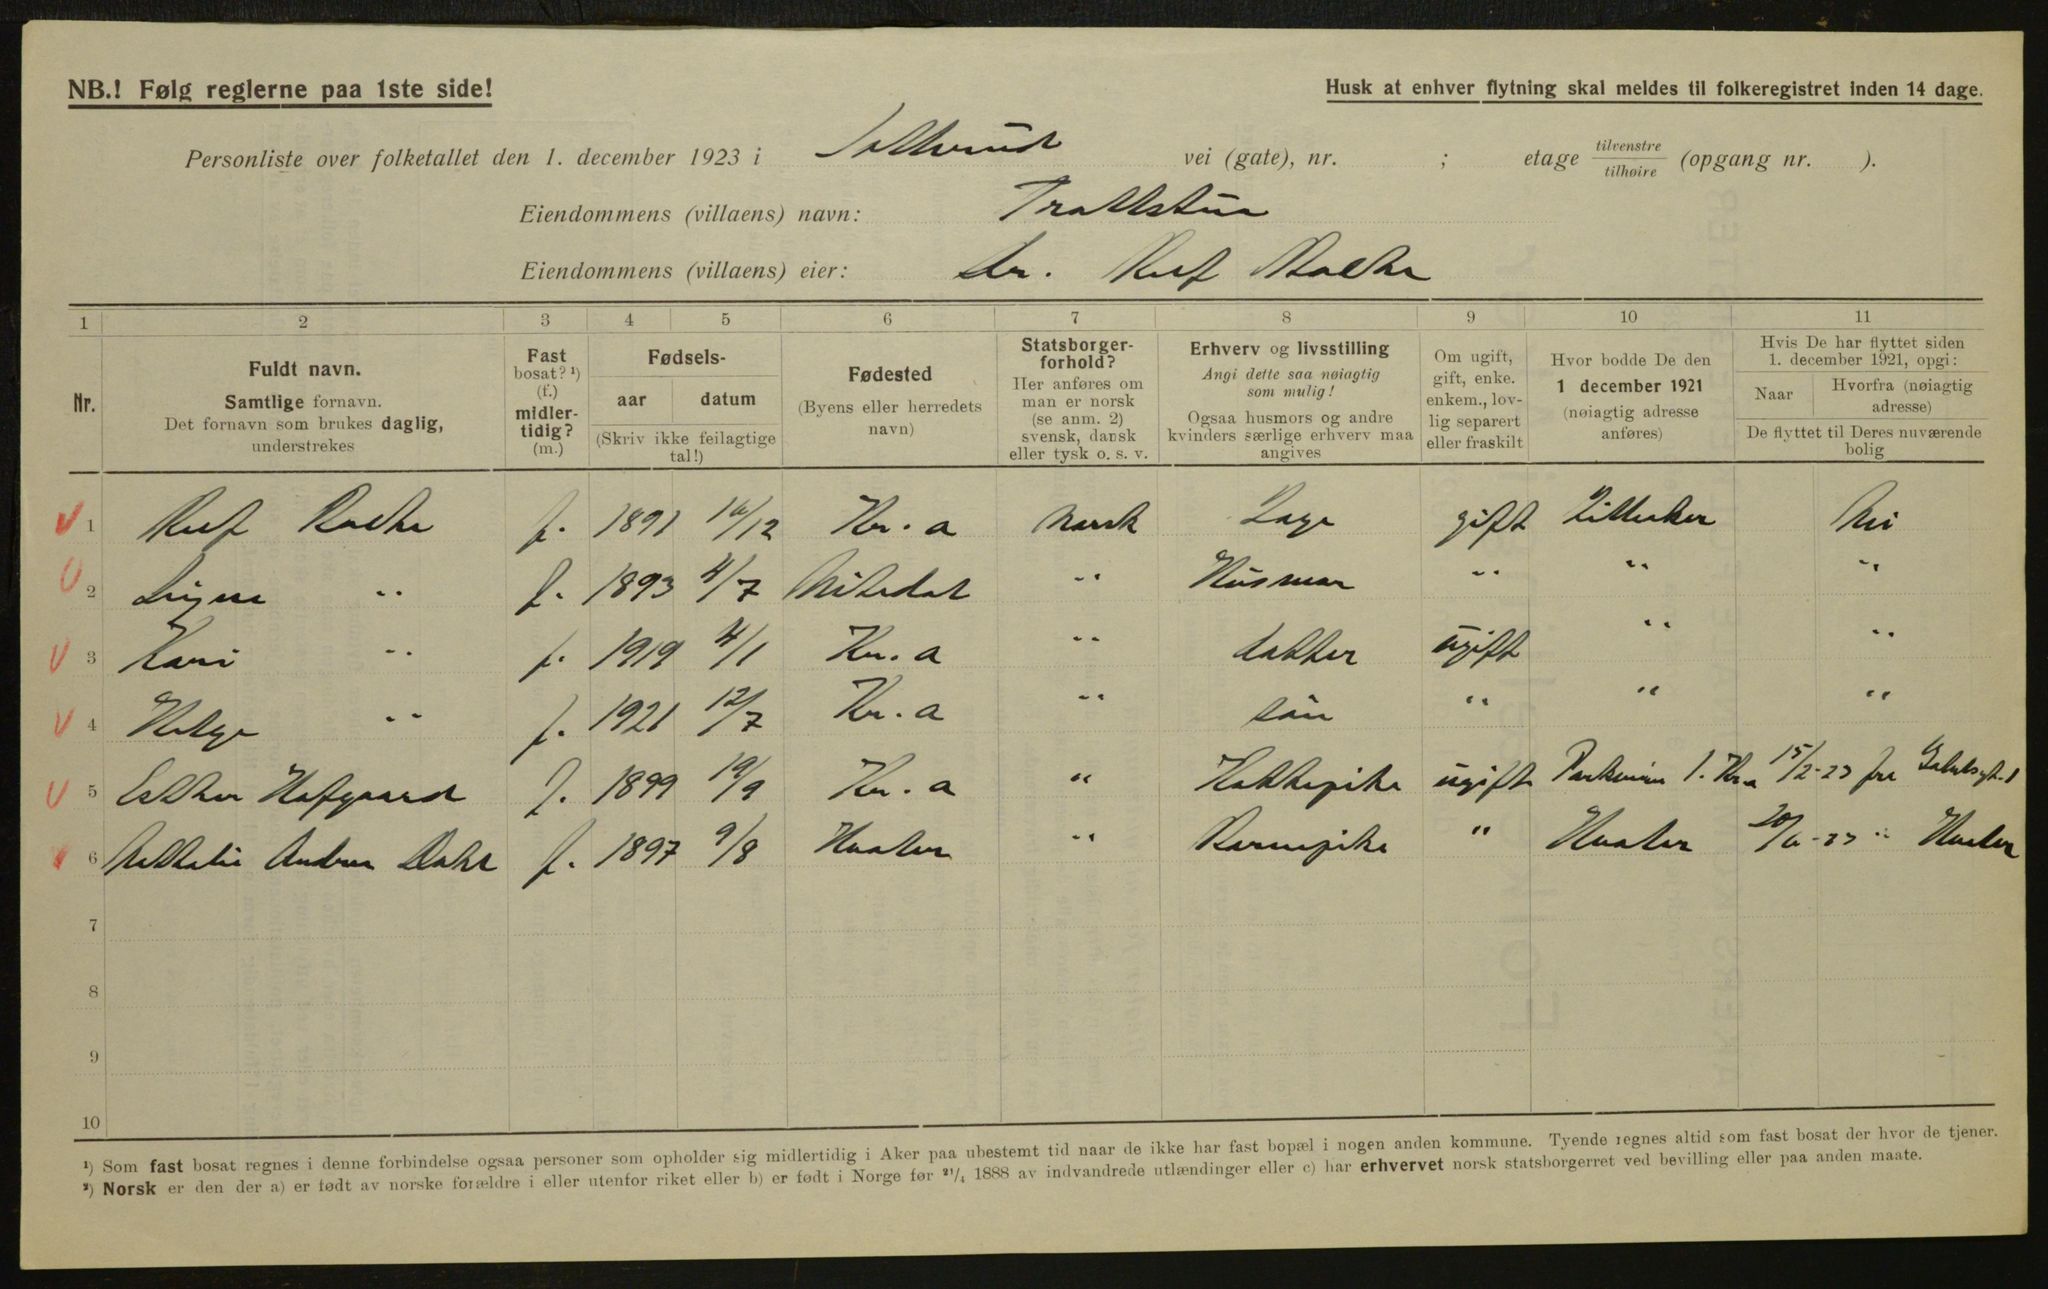 NB.! Følg reglerne paa 1ste side!
Husk at enhver flytning skal meldes til folkeregistret inden 14 dage.
Personliste over folketallet den 1. december 1923 i vei (gate), nr. ; etage tilvenstre tilhøire (opgang nr. ).
Eiendommens (villaens) navn: Trollstua
Eiendommens (villaens) eier: Dr.
1 2 3 4 5 6 7 8 9 10 11
Nr.
Fuldt navn.
Samtlige fornavn.
Det fornavn som brukes daglig,
understrekes
Fast
bosat? ¹)
(f.)
midler-
tidig?
(m.)
Fødsels-
aar datum
(Skriv ikke feilagtige
tal!)
Fødested
(Byens eller herredets
navn)
Statsborger-
forhold?
Her anføres om
man er norsk
(se anm. 2)
svensk, dansk
eller tysk o. s. v.
Erhverv og livsstilling
Angi dette saa nøiagtig
som mulig!
Ogsaa husmors og andre
kvinders særlige erhverv maa
angives
Om ugift,
gift, enke.
enkem., lov-
lig separert
eller fraskilt
Hvor bodde De den
1 december 1921
(nøiagtig adresse
anføres)
Hvis De har flyttet siden
1. december 1921, opgi:
Naar Hvorfra (nøiagtig
adresse)
De flyttet til Deres nuværende
bolig
1 f. 1891 16/12 Kr. a norsk Læge gift Lilleaker
2 Signe " f. 1893 4/7 Nitedal " Husmor " " "
3 Kari " f. 1919 4/1 Kr. a " datter ugift " "
4 Helge " f. 1921 12/7 Kr. a " søn " " "
5 Esther Hafgaard f. 1899 19/9 Kr. a " Kokkepike ugift Parkveien 1. Kr.a 15/2-23 fra
6 Dahl f. 1897 9/8 Hvaler " Barnepike " Hvaler 20/6-23 " Hvaler
7
8
9
10
¹) Som fast bosat regnes i denne forbindelse ogsaa personer som opholder sig midlertidig i Aker paa ubestemt tid naar de ikke har fast bopæl i nogen anden kommune. Tyende regnes altid som fast bosat der hvor de tjener.
²) Norsk er den der a) er født av norske forældre i eller utenfor riket eller b) er født i Norge før 21/4 1888 av indvandrede utlændinger eller c) har erhvervet norsk statsborgerret ved bevilling eller paa anden maate.